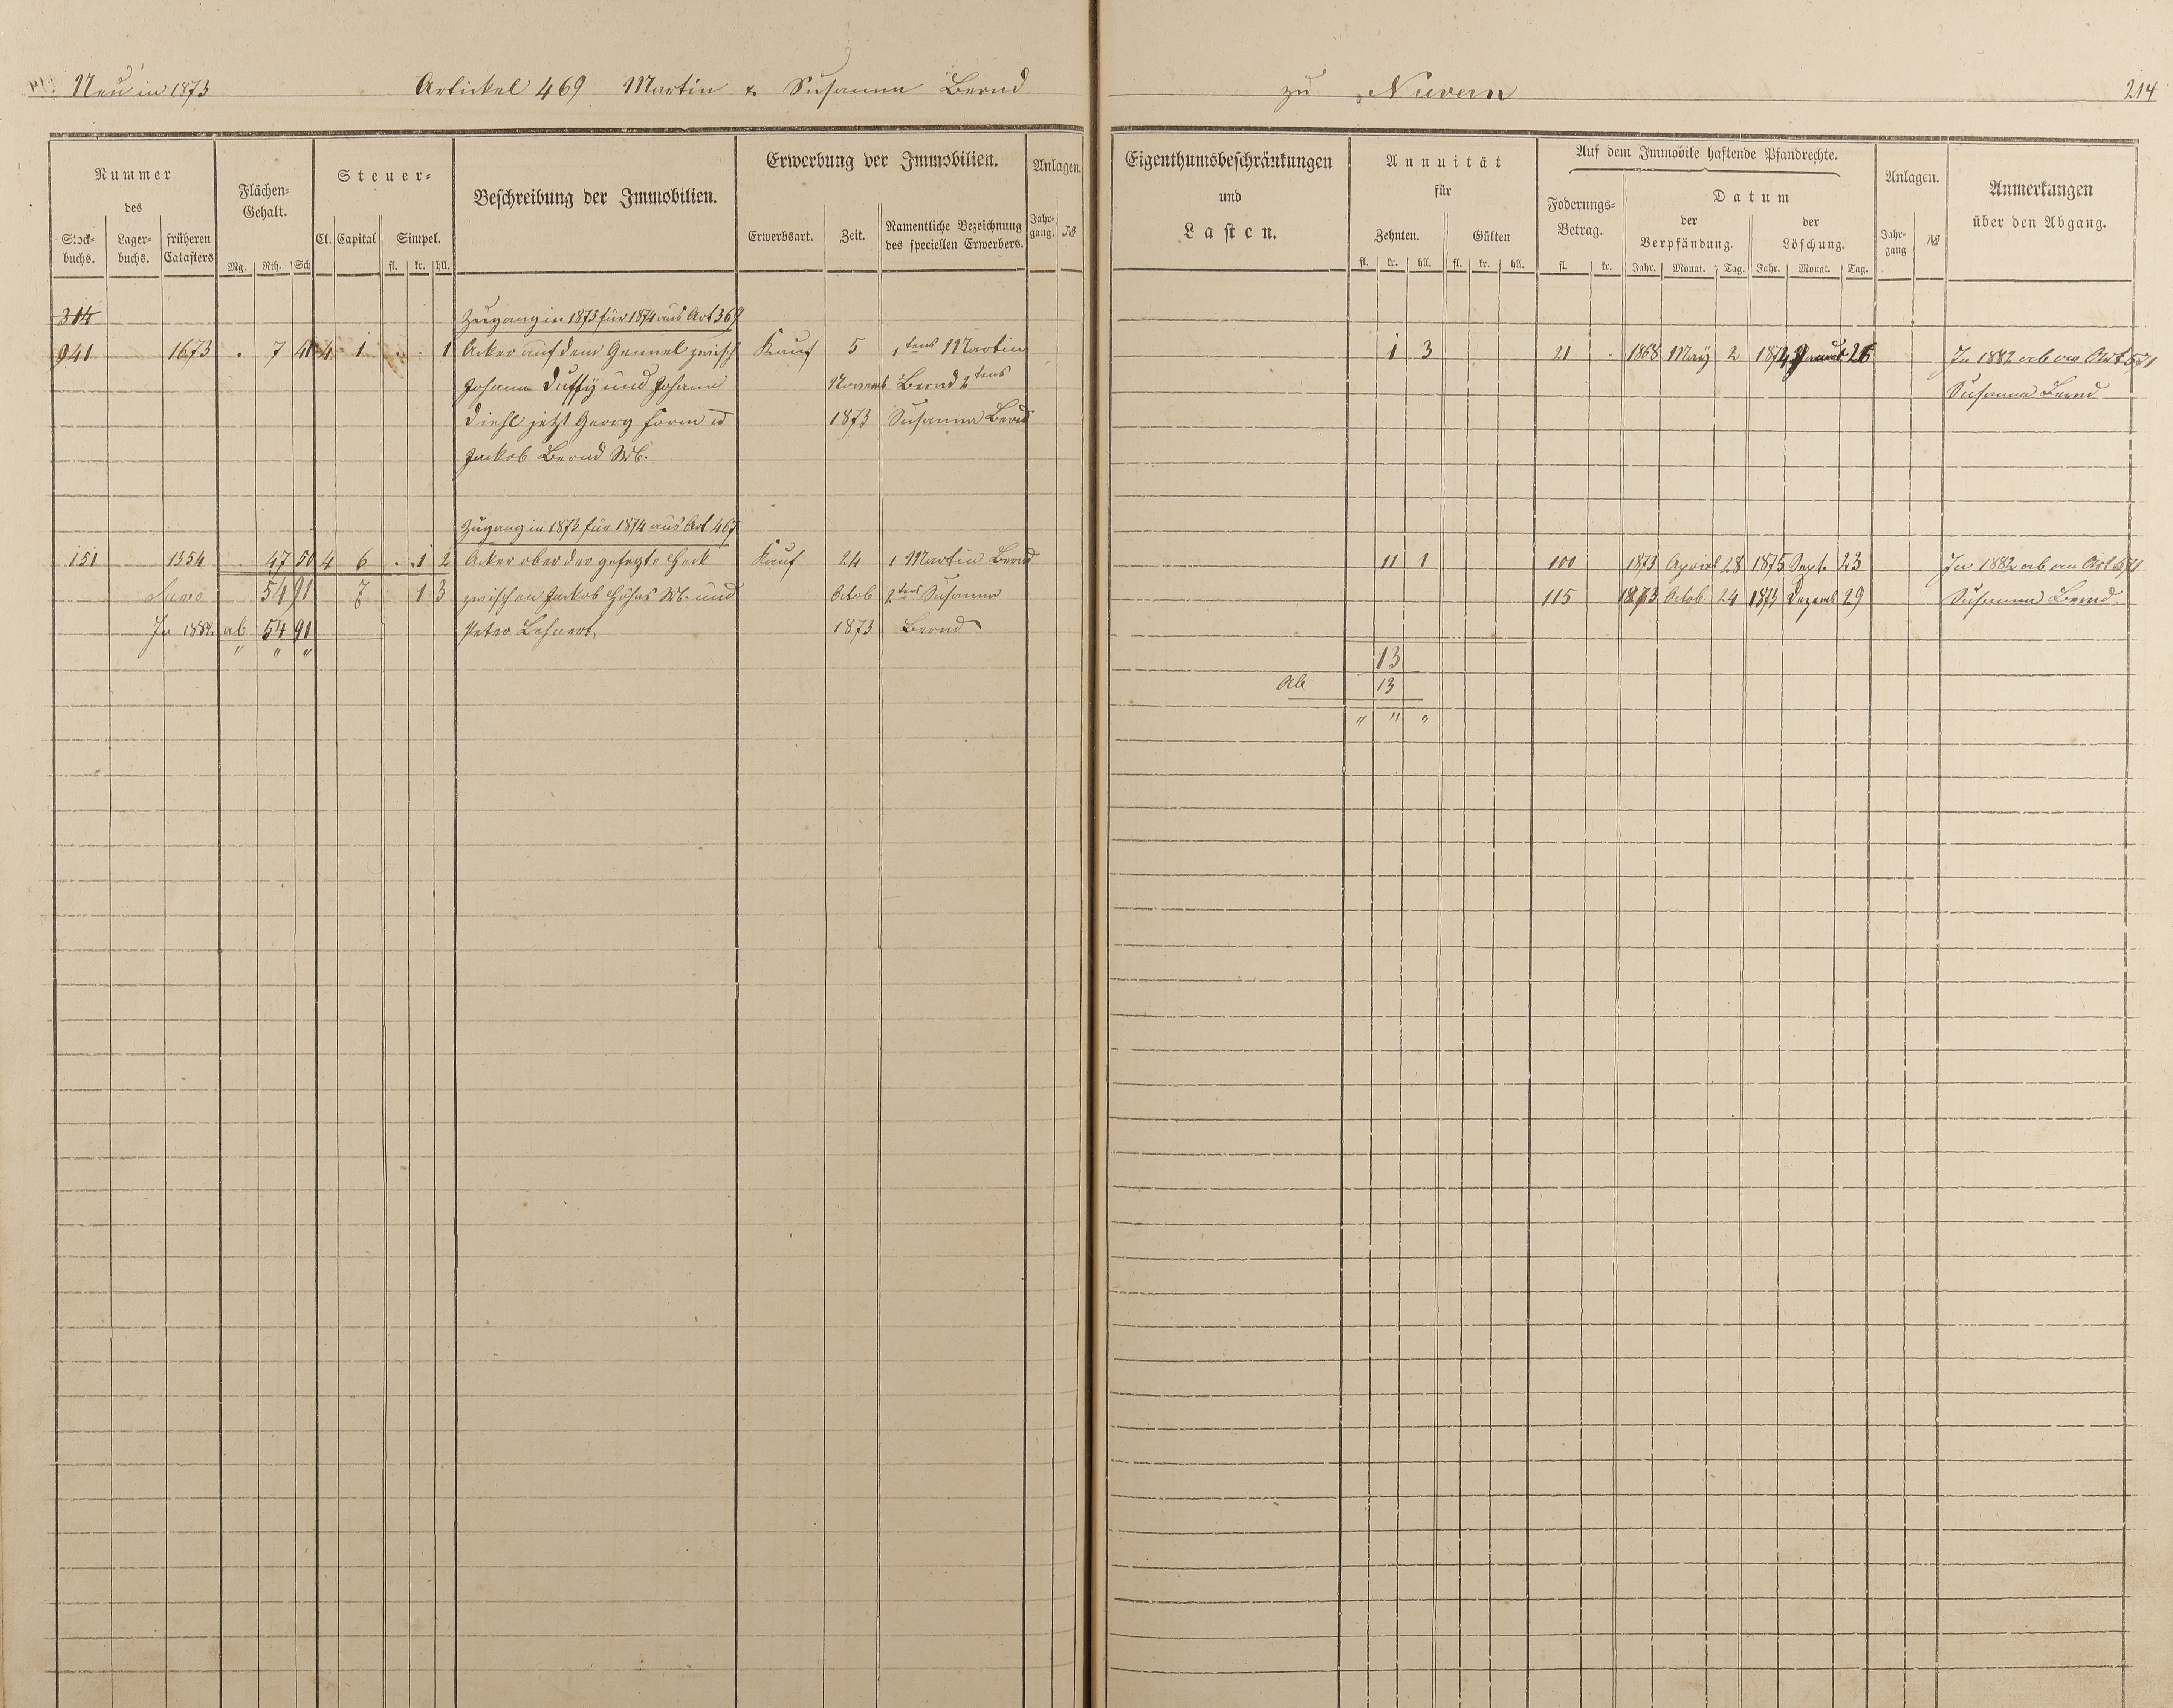 Neu in 1873 Artickel 469 Martin & Susanna Bernd zu Nievern 214
Nummer des
Stockbuchs. Lagerbuchs. früheren Catasters
Flächen-Gehalt.
Mg. Rth. Sch
Steuer-
Cl. Capital Simpel.
fl. kr. hll.
Beschreibung der Immobilien.
Erwerbung der Immobilien.
Erwerbsart. Zeit. Namentliche Bezeichnung des speciellen Erwerbers.
Anlagen.
Jahrgang. №
Eigenthumsbeschränkungen
und
Lasten.
Annuität
für
Zehnten. Gülten
fl. kr. hll. fl. kr. hll.
Auf dem Immobile haftende Pfandrechte.
Foderungs-Betrag.
fl. kr.
Datum
der Verpfändung. der Löschung.
Jahr. Monat. Tag. Jahr. Monat. Tag.
Anlagen.
Jahrgang №
Anmerkungen
über den Abgang.
314 Zugang in 1873 für 1874 aus Art 369
941 1673 . 7 41 4 1 . . 1 Acker auf dem Gennel zwisch Kauf 5 1tens Martin 1 3 21 . 1868 May 2 1874 26 In 1882 ab an Art 571
Johann Duffy und Johann Novemb Bernd 2tens Susanna Bernd
Diehl jetzt Georg Form u 1873 Susanna Bernd
Jackob Bernd Wb.
Zugang in 1873 für 1874 aus Art 467
151 1354 . 47 50 4 6 . 1 2 Acker ober der gesezte Heck Kauf 24 1 Martin Bernd 11 1 100 1873 Apriel 28 1875 Sept. 23 In 1882 ab an Art 571
Suma 54 91 7 1 3 zwischen Jackob Höhns Wb. und Octob 2tens Susanna 115 1873 Octob 24 1873 Dezemb 29 Susanna Bernd.
In 1882. ab 54 91 Peter Lehnert 1873 Bernd
" " "
13
Ab 13
" " "